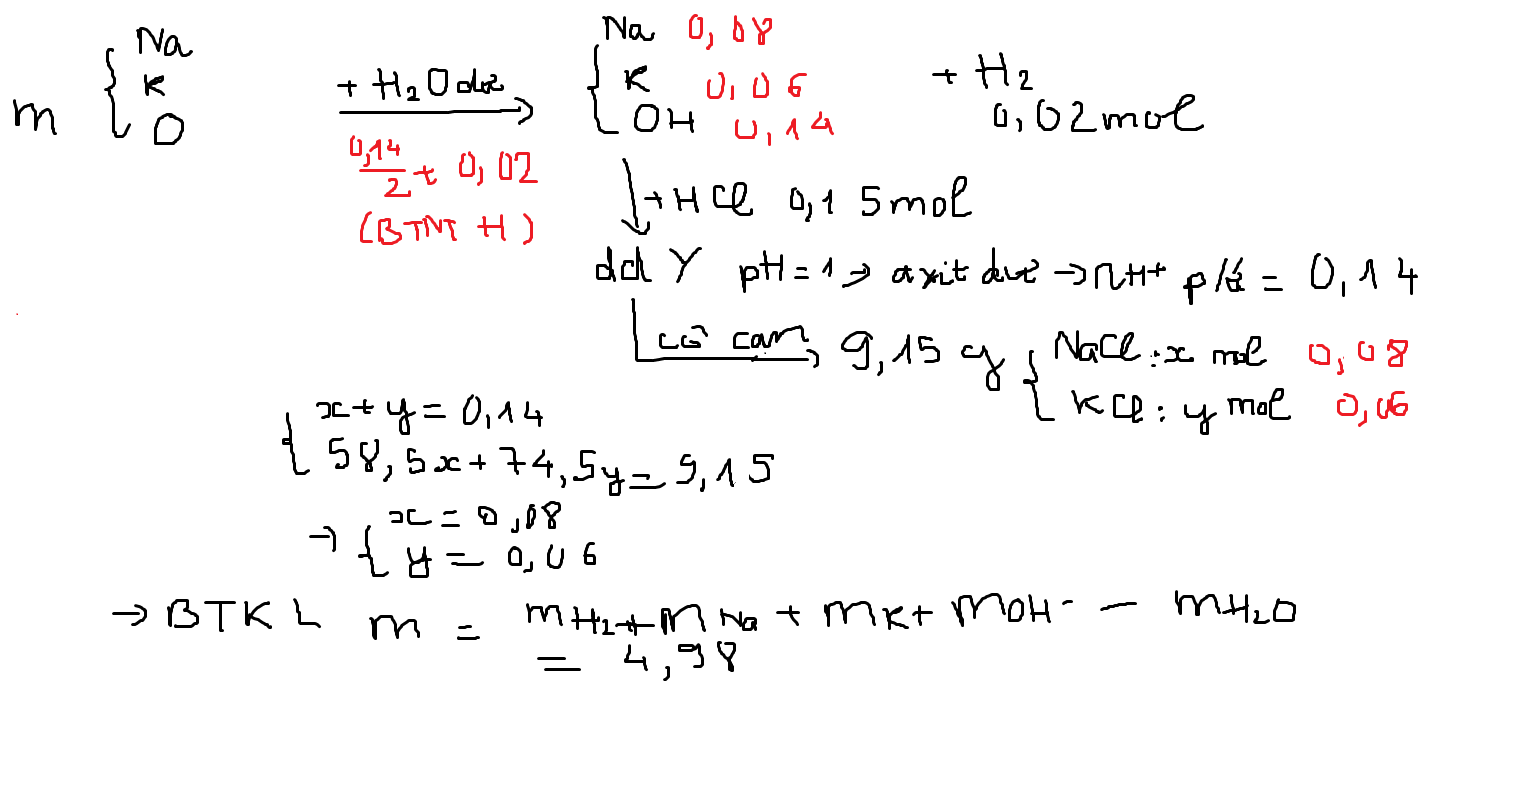 m { Na K O
+ H2O dư
0,14/2 + 0,02
(BTNT H)
{ Na 0,08
K 0,06
OH 0,14
+ H2
0,02 mol
+ HCl 0,15 mol
dd Y pH = 1 → axit dư → nH+ p/ứ = 0,14
cô cạn 9,15 g { NaCl : x mol 0,08
KCl : y mol 0,06
{ x + y = 0,14
58,5x + 74,5y = 9,15
→ { x = 0,08
y = 0,06
→ BTKL m = mH2 + mNa + mK + mOH- - mH2O
= 4,98